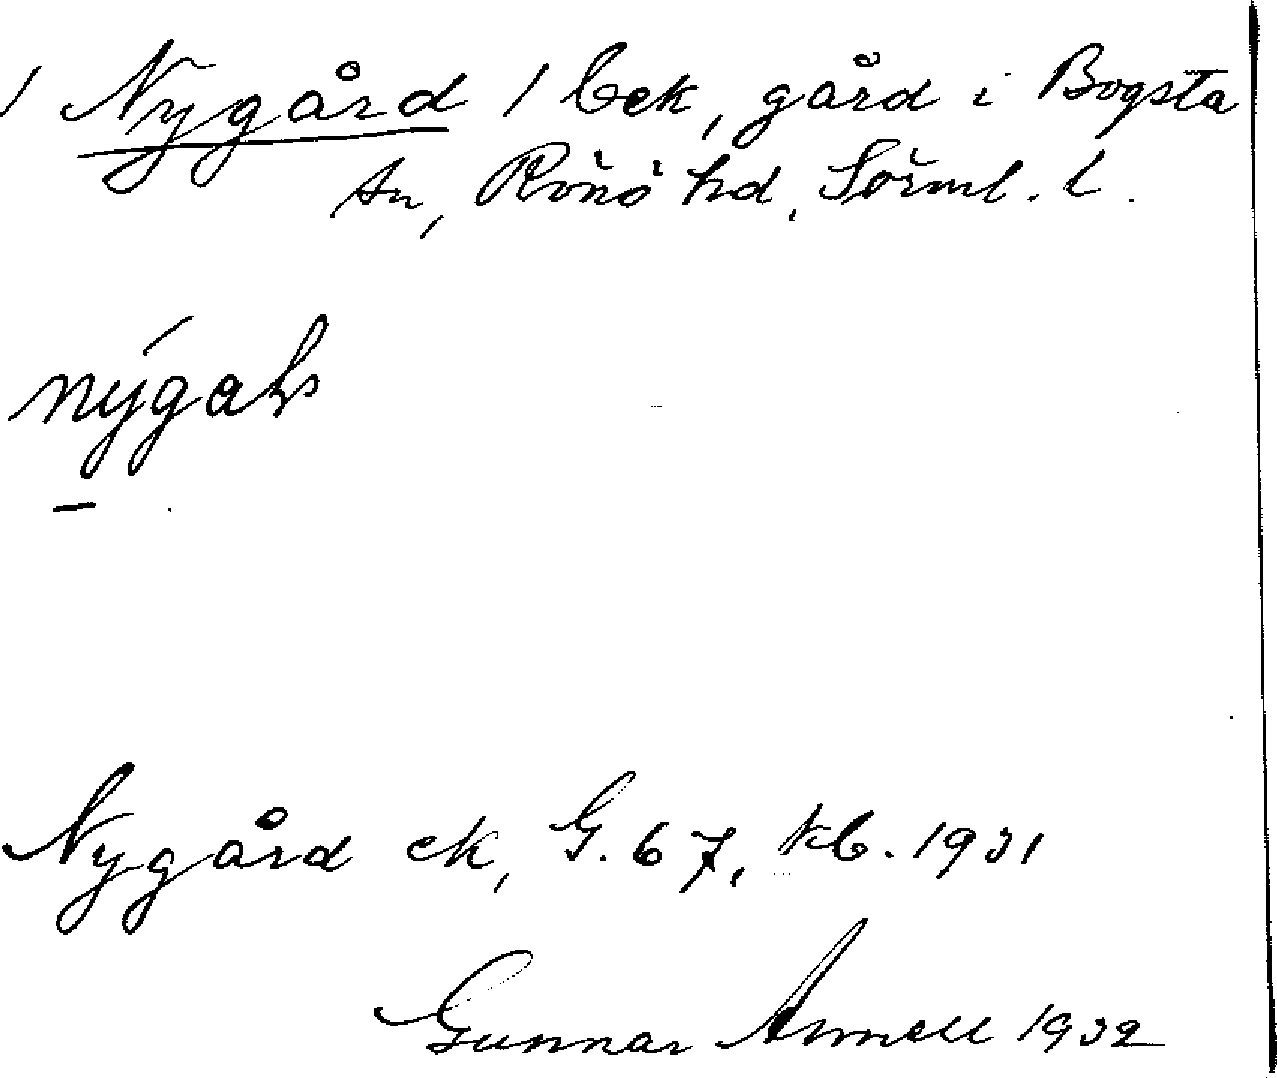 / Nygård / bek, gård i Bogsta
sn, Rönö hd, Sörml. l.
Nygård ek, G. 67, kb. 1931
Gunnar Annell 1932